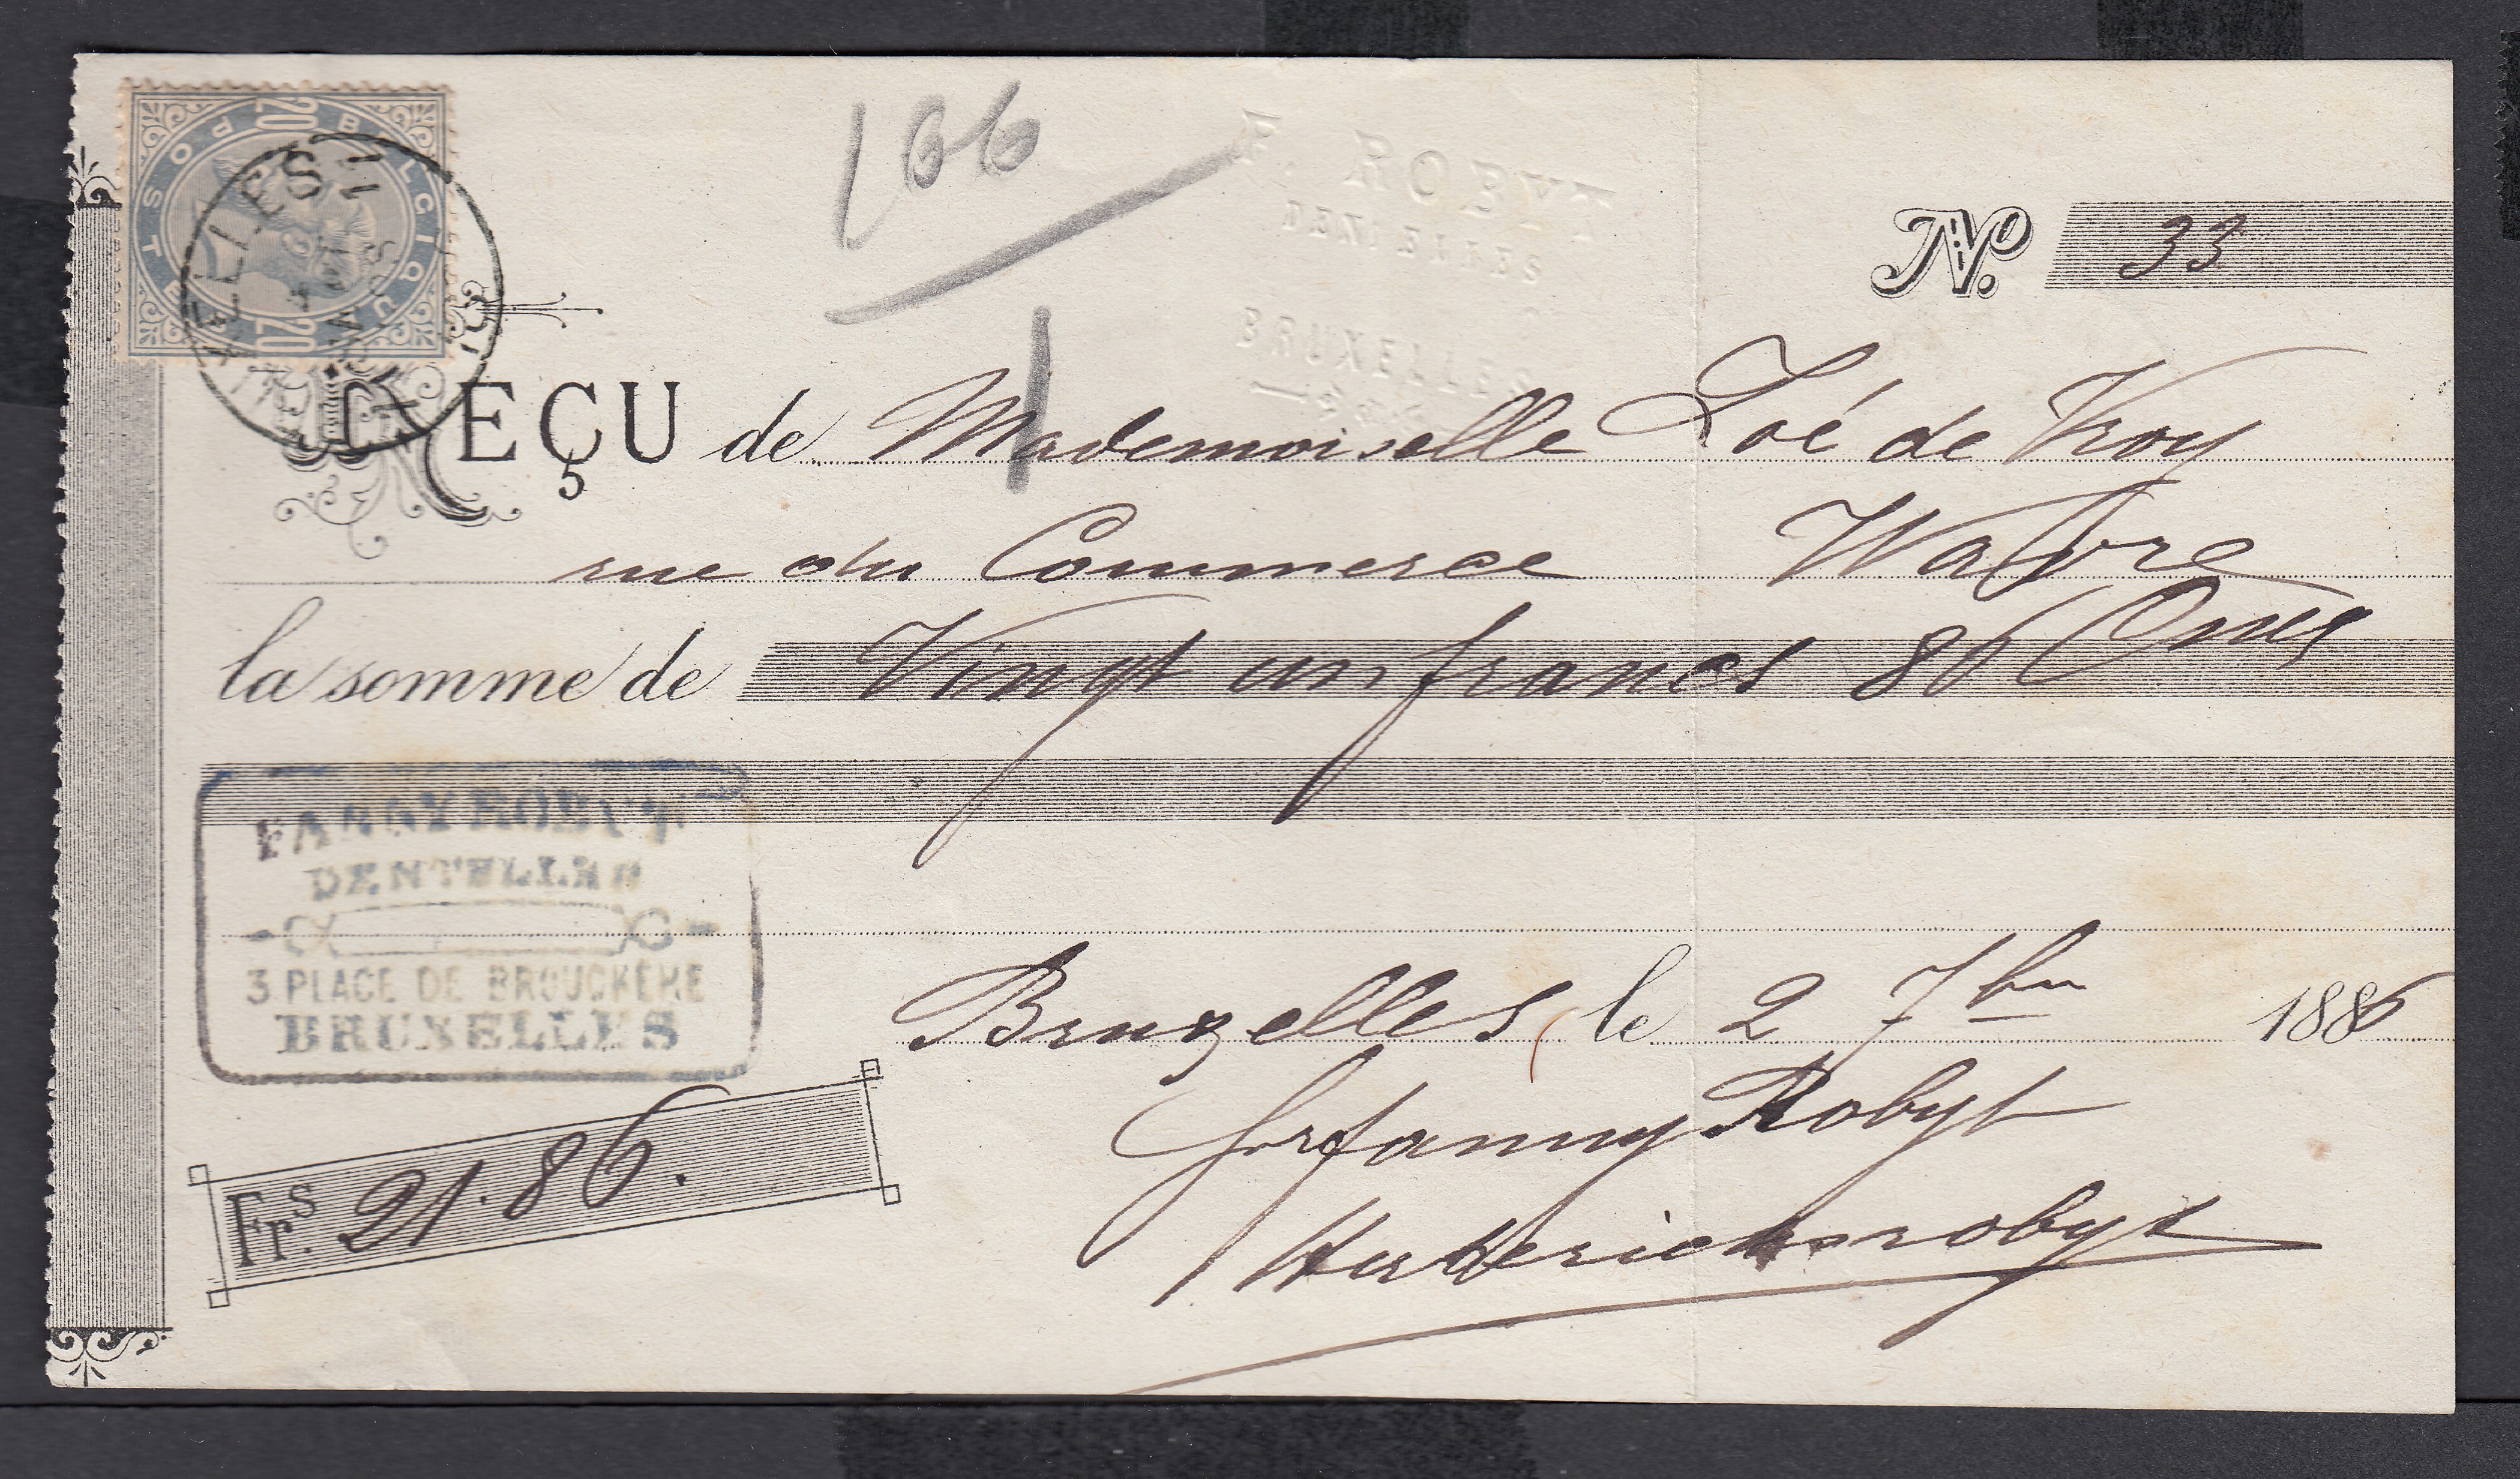 POSTES BELGIQUE
20 20
BRUXELLES
11
166
F. ROBYT
DENTELLES
BRUXELLES
No. 33
REÇU de Mademoiselle Zoé de Kroy
rue du Commerce Wavre
la somme de Vingt un francs 86 Cmes
FANNY ROBYT
DENTELLES
3 PLACE DE BROUCKÈRE
BRUXELLES
Bruxelles le 2 7bre 1886
Frs. 21.86.
Fanny Robyt
robyt